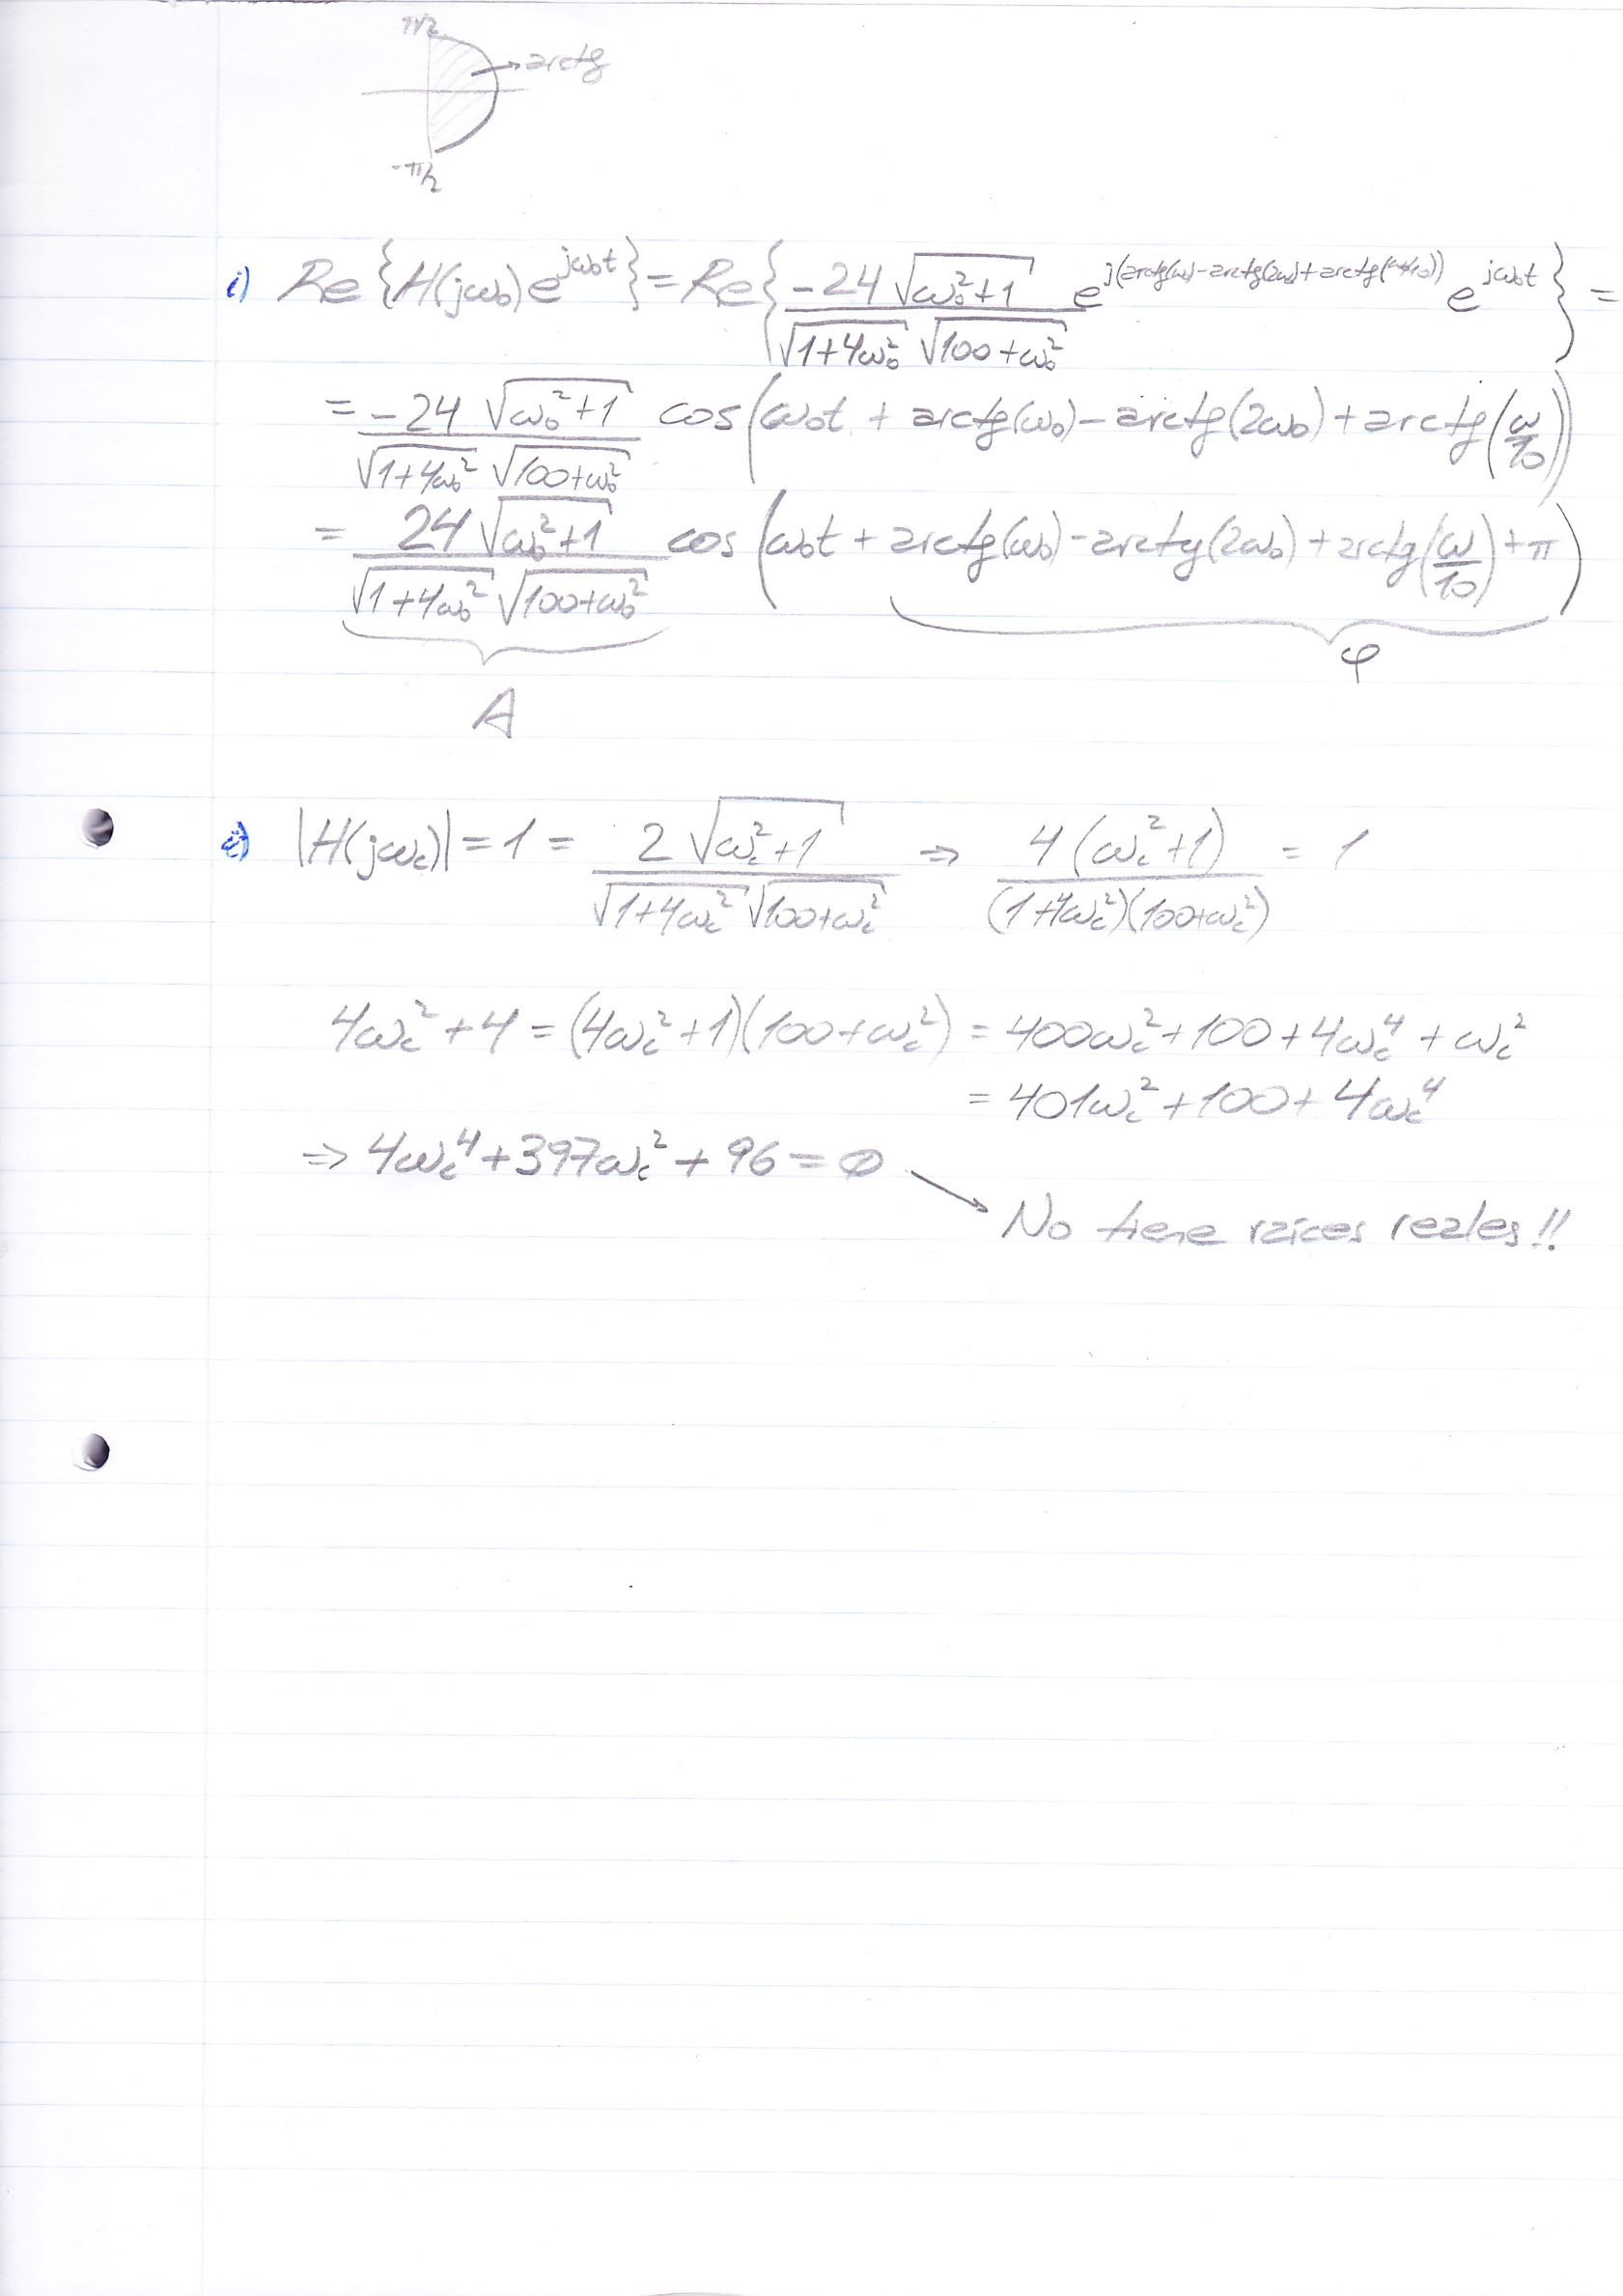 π/2
→ arctg
-π/2
i) Re{H(jω₀)e^{jω₀t}} = Re{ -24√(ω₀²+1) / (√(1+4ω₀²) √(100+ω₀²)) e^{j(arctg(ω₀)-arctg(2ω₀)+arctg(ω/10))} e^{jω₀t} } =
= -24√(ω₀²+1) / (√(1+4ω₀²) √(100+ω₀²)) cos(ω₀t + arctg(ω₀) - arctg(2ω₀) + arctg(ω/10))
= 24√(ω₀²+1) / (√(1+4ω₀²) √(100+ω₀²)) cos(ω₀t + arctg(ω₀) - arctg(2ω₀) + arctg(ω/10) + π)
A φ
|H(jω_c)| = 1 = 2√(ω_c²+1) / (√(1+4ω_c²) √(100+ω_c²)) ⇒ 4(ω_c²+1) / ((1+4ω_c²)(100+ω_c²)) = 1
4ω_c² + 4 = (4ω_c²+1)(100+ω_c²) = 400ω_c² + 100 + 4ω_c⁴ + ω_c²
= 401ω_c² + 100 + 4ω_c⁴
⇒ 4ω_c⁴ + 397ω_c² + 96 = 0
No tiene raíces reales!!